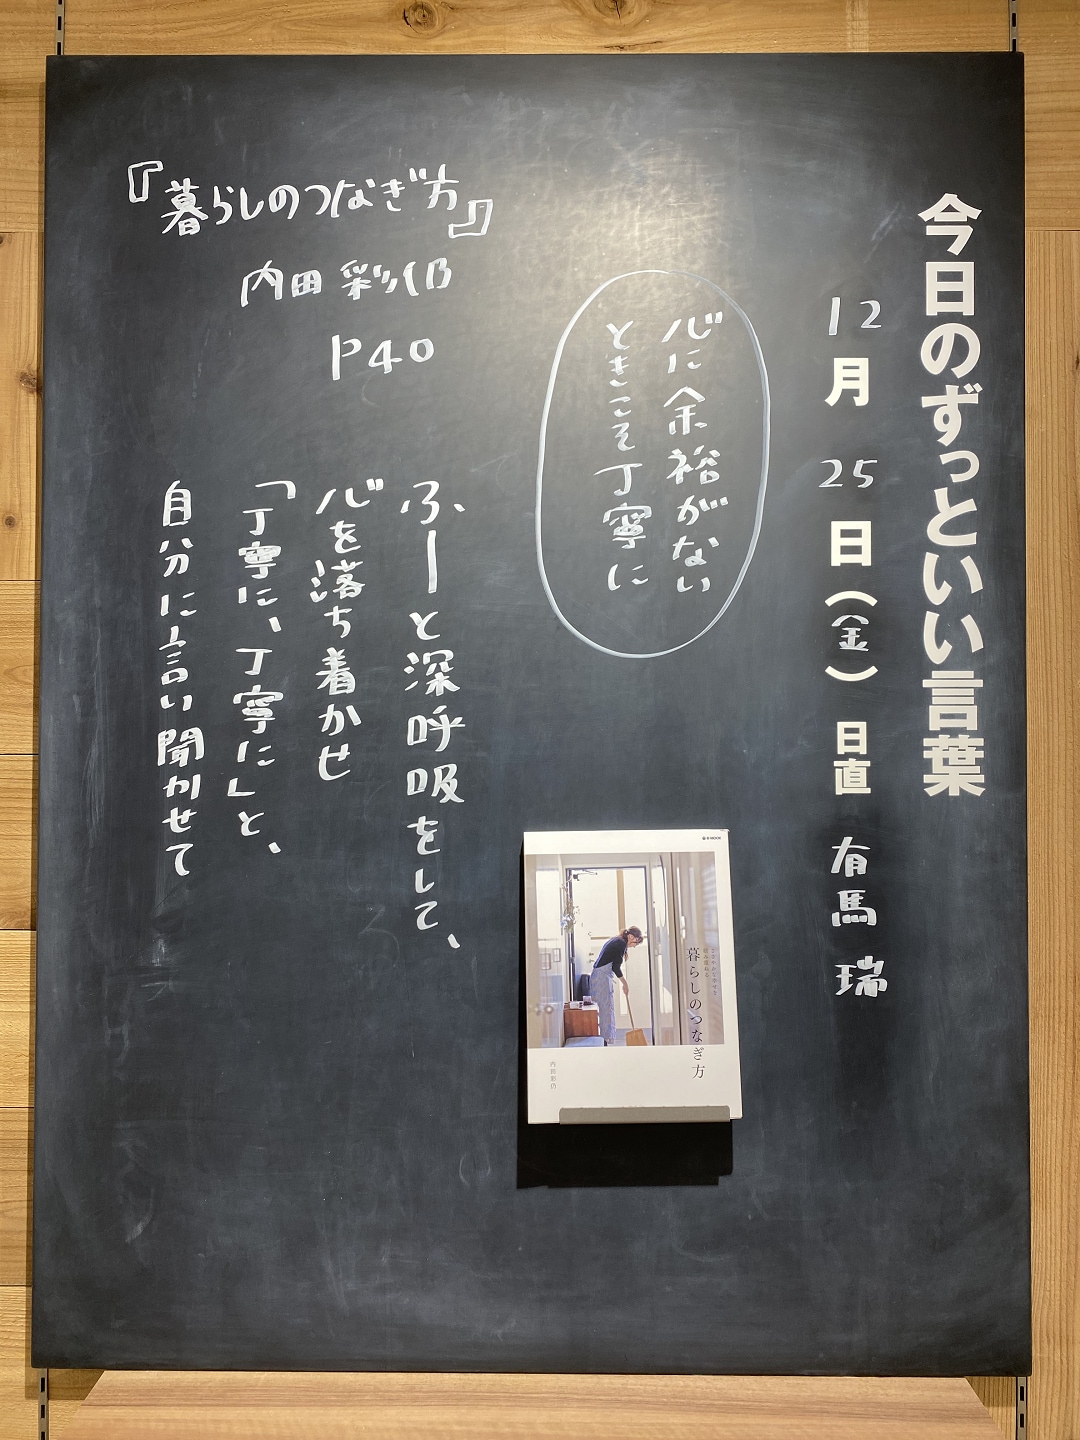 今日のずっといい言葉
12月25日（金）日直 有馬 瑞
心に余裕がない
ときこそ丁寧に
『暮らしのつなぎ方』
内田彩仍
P40
ふーと深呼吸をして、
心を落ち着かせ
「丁寧に、丁寧に」と、
自分に言い聞かせて
暮らしのつなぎ方
内田彩仍